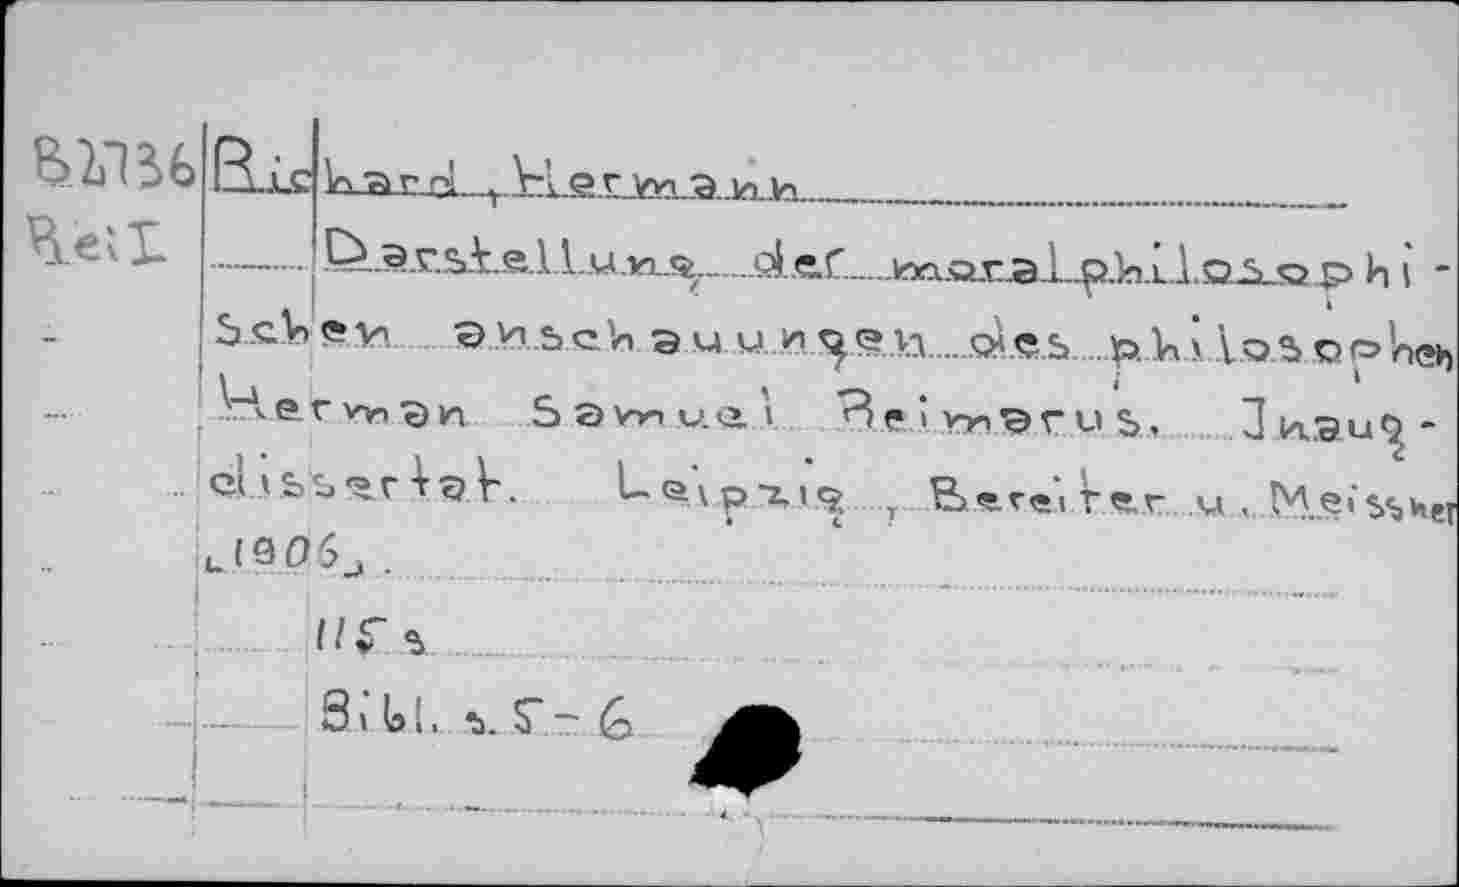 B2736 Richard, Hermann
ReiI Darstellung der moralphilosophi-
schen anschauungen des philosophen
Herman Samuel Reimarus. Inaug-
dissertat. Leipzig, Bereiter u. Meissner
[1906].
115 s
Bibl. s. 5-6